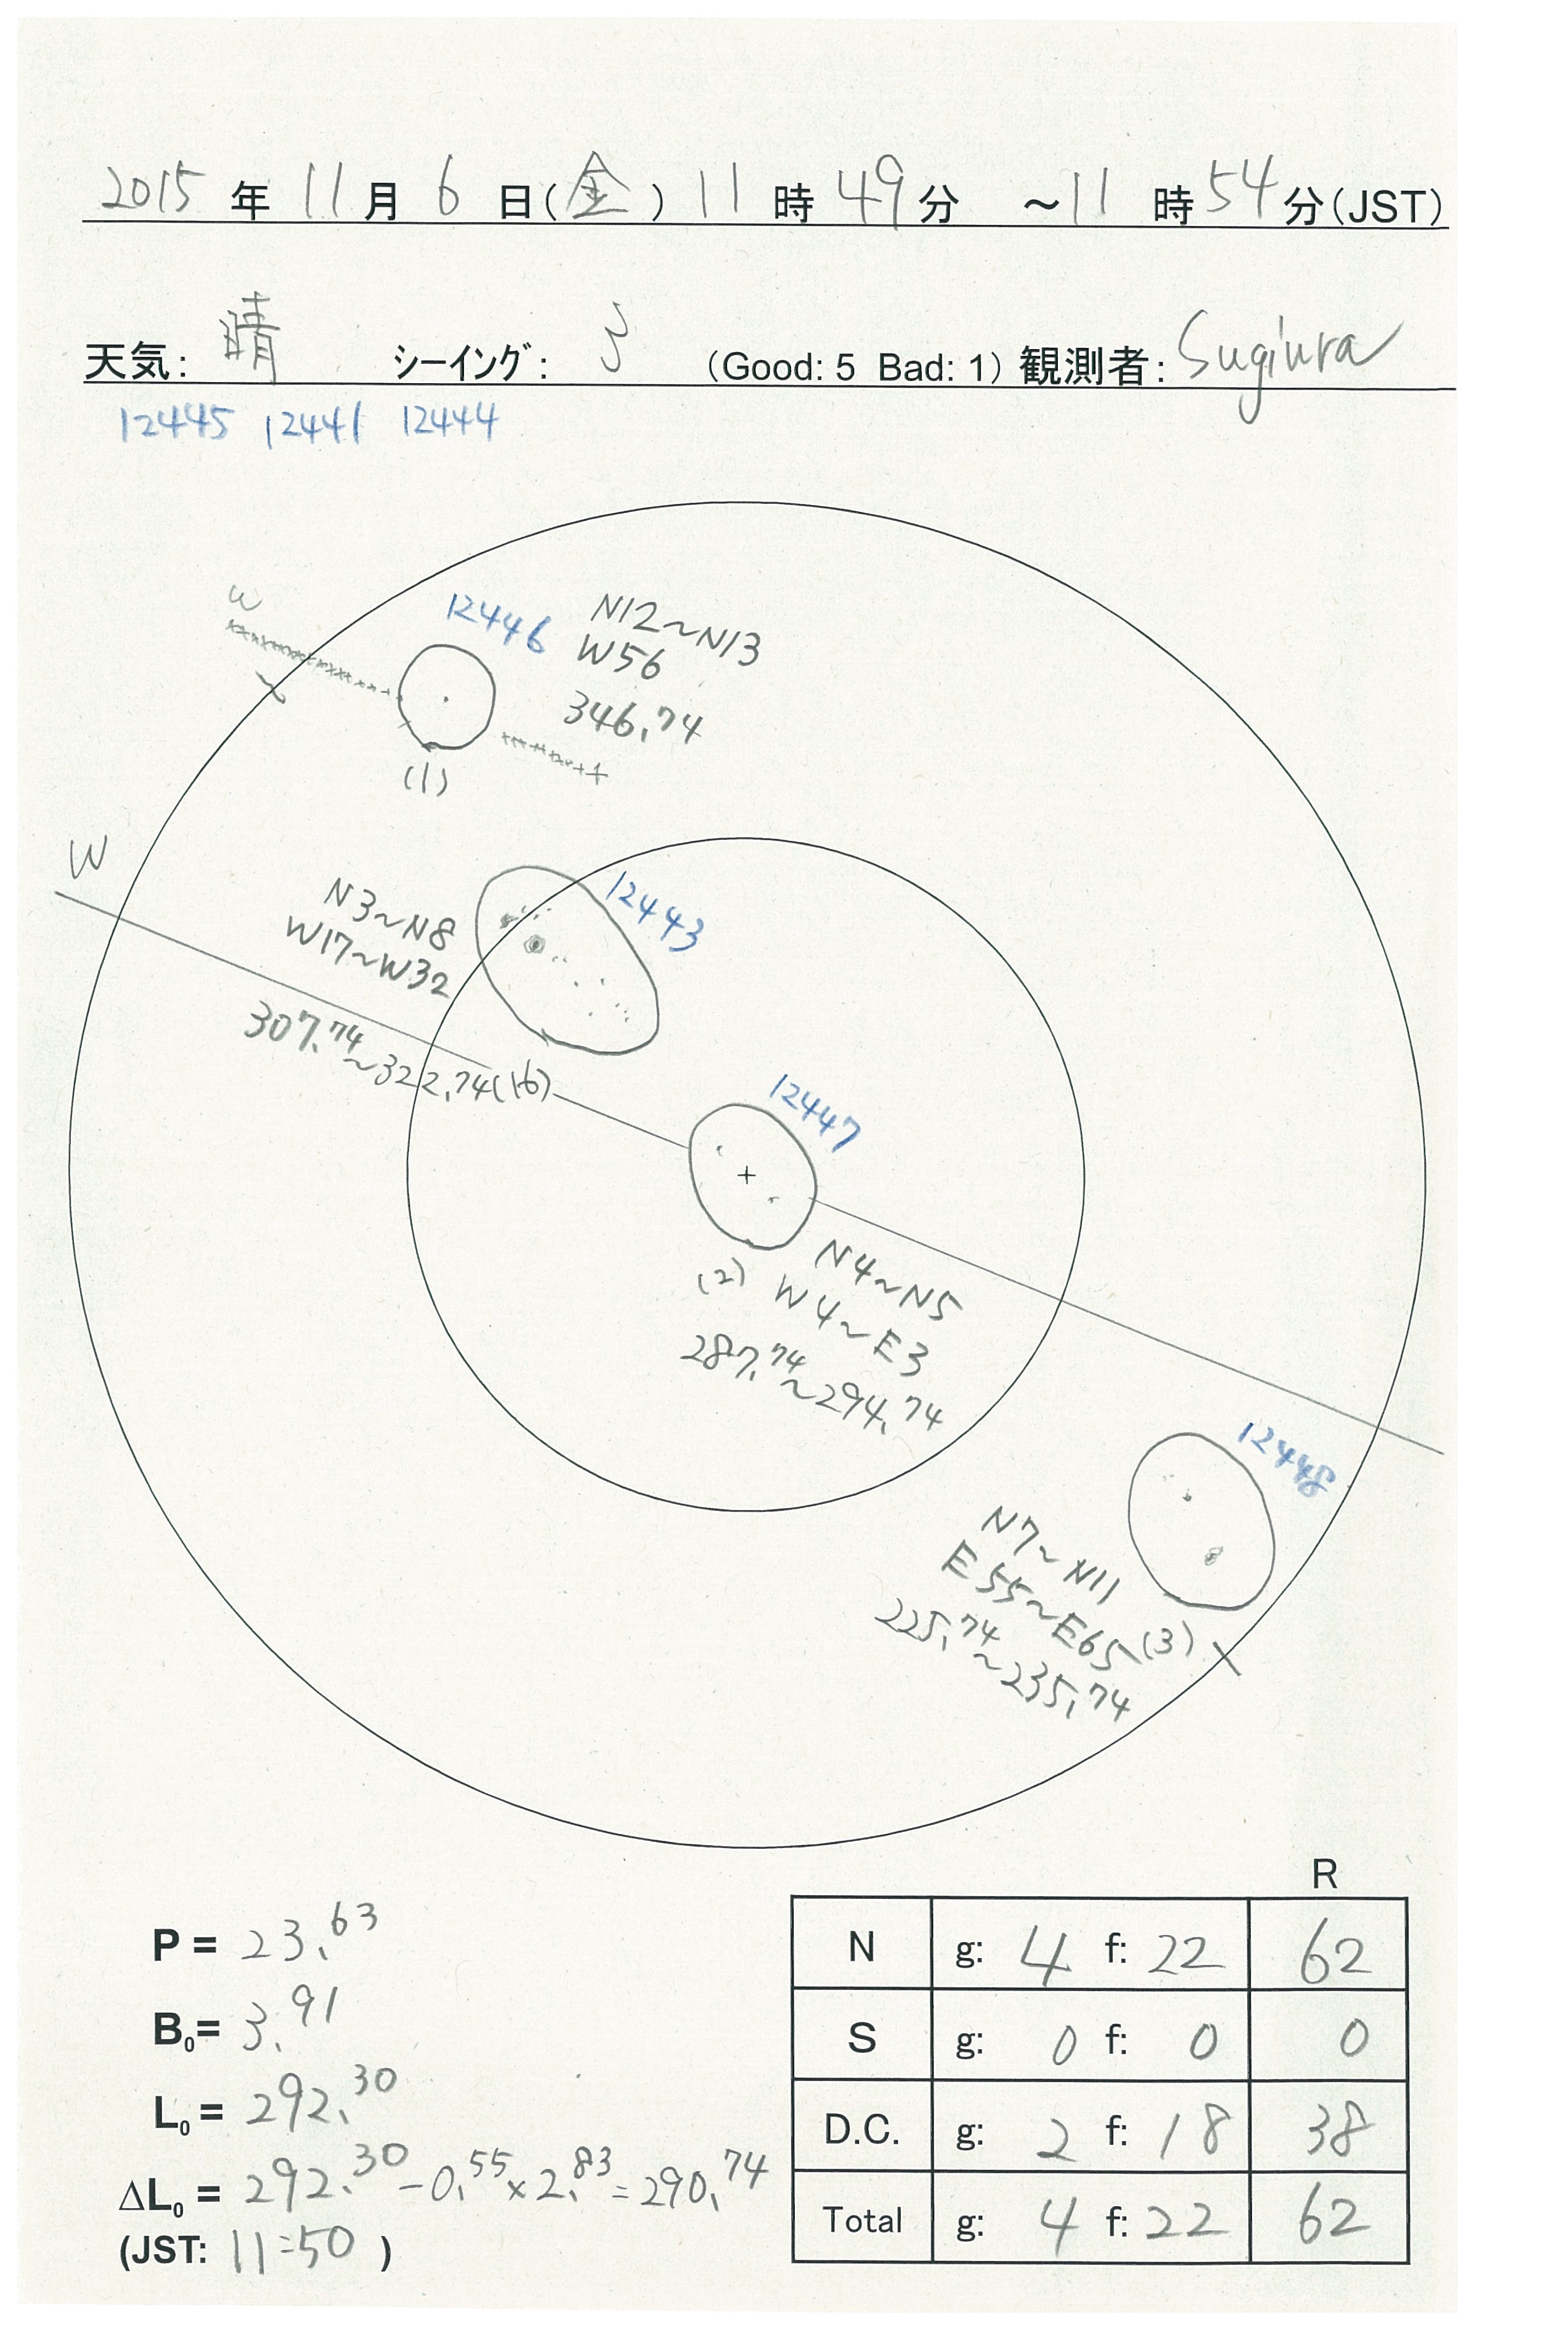 2015 年 11 月 6 日(金) 11 時 49 分 ~11 時 54 分(JST)
天気: 晴 シーイング: 3 (Good: 5 Bad: 1) 観測者: Sugiura
12445 12441 12444
W
12446
N12~N13
W56
346.74
(1)
W
12443
N3~N8
W17~W32
307.74~322.74(16)
12447
(2)
N4~N5
W4~E3
287.74~294.74
12448
N7~N11
E55~E65(3)
225.74~235.74
R
P = 23.63
B0= 3.91
L0 = 292.30
ΔL0 = 292.30-0.55×2.83=290.74
(JST: 11:50 )
N g: 4 f: 22 62
S g: 0 f: 0 0
D.C. g: 2 f: 18 38
Total g: 4 f: 22 62